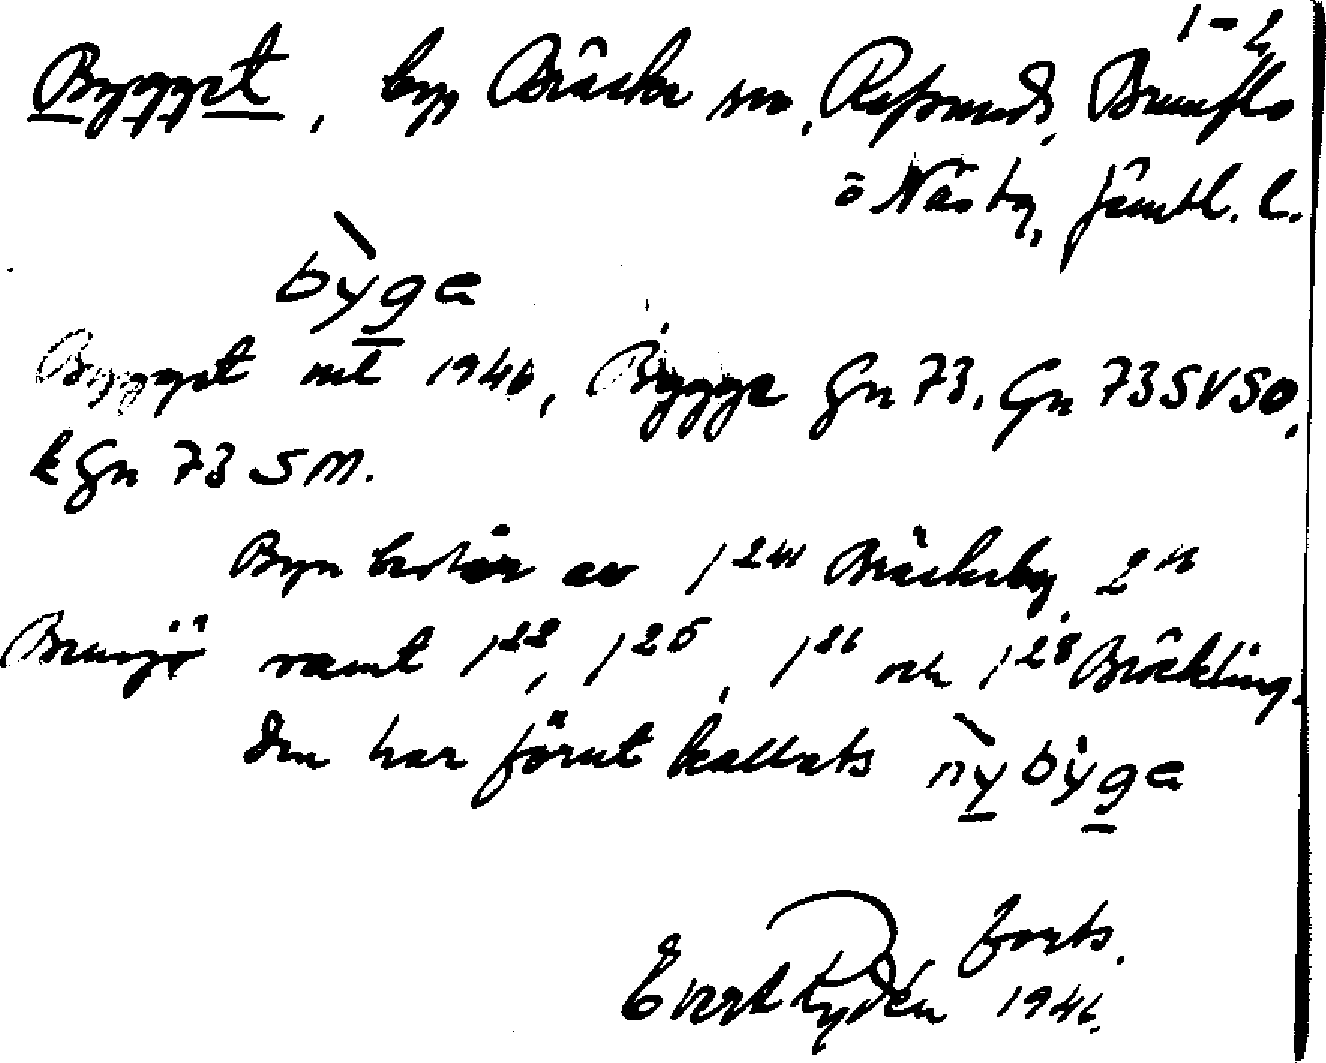 1-2
Bygget, by, Bräcke sn, Refsunds, Brunflo
o Näs tg, Jämtl. l.
by̲ga
Bygget mtl 1946, Bygge Gn 73. Gn 73 SVSO,
k Gn 73 SM.
Byn består av 1²⁴ Bräcksby, 2
Brunsjö samt 1²², 1²⁵, 1²⁶ och 1²⁸ Bräckling.
Den har förut kallats nybyga
forts.
Evert Rydén 1946.